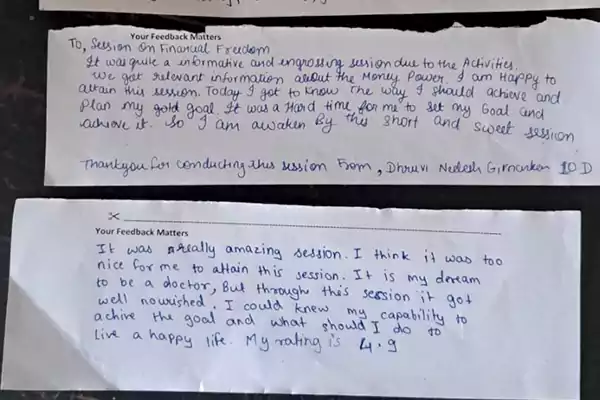 Your Feedback Matters
To, Session On Financial Freedom
It was quite a informative and engrossing session due to the Activities.
We get relevant information about the Money Power. I am Happy to
attain this session. Today I got to know the way I should achieve and
Plan my gold goal. It was a Hard time for me to set my Goal and
achieve it. So I am awaken By this short and sweet session
Thankyou for conducting this session From, Dhruvi 10 D
Your Feedback Matters
It was really amazing session. I think it was too
nice for me to attain this session. It is my dream
to be a doctor, But through this session it got
well nourished. I could knew my capability to
achive the goal and what should I do to
live a happy life. My rating is 4.9